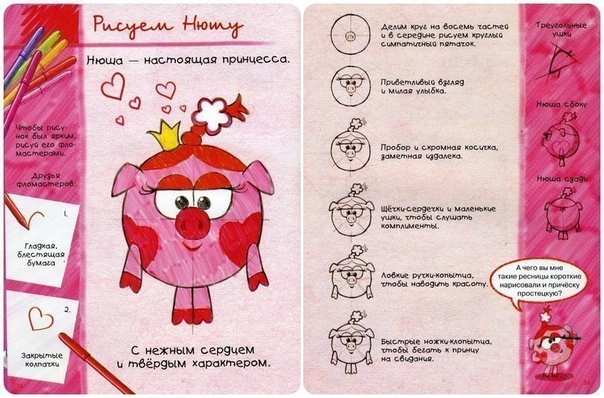 Рисуем Нюшу
Нюша — настоящая принцесса.
Чтобы рису-
нок был ярким,
рисуй его фло-
мастерами.
Друзья
фломастеров:
1.
Гладкая,
блестящая
бумага
2.
Закрытые
колпачки
С нежным сердцем
и твёрдым характером.
Делим круг на восемь частей
и в середине рисуем круглый
симпатичный пятачок.
Приветливый взгляд
и милая улыбка.
Пробор и скромная косичка,
заметная издалека.
Щёчки-сердечки и маленькие
ушки, чтобы слушать
комплименты.
Ловкие ручки-копытца,
чтобы наводить красоту.
Быстрые ножки-копытца,
чтобы бегать к принцу
на свидания.
Треугольные
ушки
Нюша сбоку
Нюша сзади
А чего вы мне
такие ресницы короткие
нарисовали и причёску
простецкую?